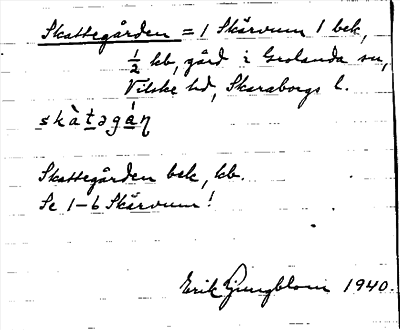 Skattegården = 1 Skärvum 1 bek,
1/2 kb, gård i Grolanda sn,
Vilske hd, Skaraborgs l.
skàtəgán
Skattegården bek, kb.
Se 1-6 Skärvum!
Erik Ljungblom 1940.